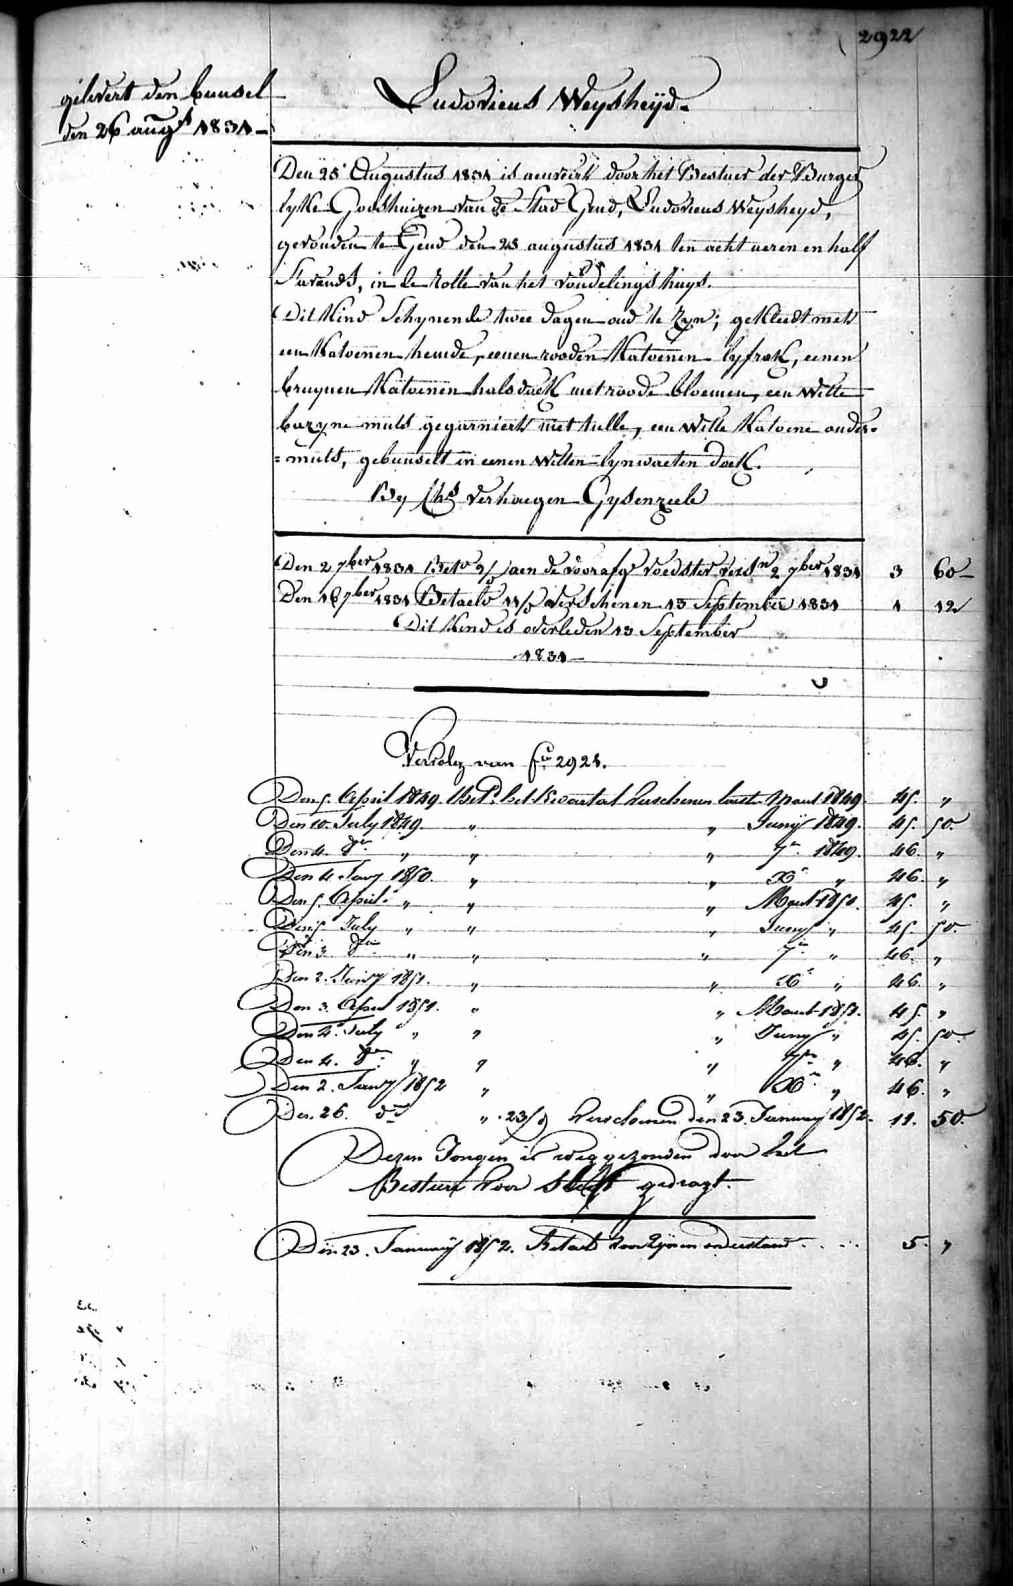 2922
gelevert den bunsel
den 26 augt 1831
Ludovicus Weysheyd.
Den 25 Augustus 1831 is aenveirt door het Bestuer der Burger
lyke Godshuizen van de Stad Gend, Ludovicus Weysheyd,
gevonden te Gend den 23 augustus 1831 ten acht ueren en half
S'avonds, in de Rolle van het vondelingshuys.
Dit Kind Schynende twee dagen oud te zyn; gekleedt met
een Katoenen hemde, eenen rooden Katoenen lyfrok, eenen
bruynen Katoenen halsdoek met roode bloemen, een Witte
bazyne muts gegarniert met tulle, een Witte Katoene onder=
=muts, gebunselt in eenen Witten lynwaeten doek.
By Chs Verhaegen Gysenzeele
Den 2 7ber 1831 Betd aen de voorafge voedster 2 7ber 1831 3 60
Den 16 7ber 1831 Betaelt 11/ verschenen 13 September 1831 1 12
Dit Kind is overleden 13 September
1831
Vervolg van fo 2928.
Den 5. April 1849. Bet. het Kwartaal verschenen laest Maart 1849 45. "
Den 10. July 1849. " " Junij 1849. 45. 50.
Den 4. 8er " " " 7er 1849. 46. "
Den 4. Jany 1850. " " Xr " 46. "
Den 5. April " " " Maart 1850. 45. "
Den 5 July " " " Juny " 45. 50.
Den 3 8er " " " 7r " 46. "
Den 2. Jany 1851. " " Xr " 46. "
Den 3. April 1851. " " Maart 1851. 45. "
Den 4. July " " " Juny " 45. 50.
Den 4. 8er " " " 7er " 46. "
Den 2. Jany 1852 " " Xr " 46. "
Den 26. do " 23/ Verschenen den 23. January 1852. 11. 50.
Dezen Jongen is weggezonden door het
Bestuer voor slecht gedragt.
Den 23. January 1852. Betaelt voor zynen onderstand.... 5. "